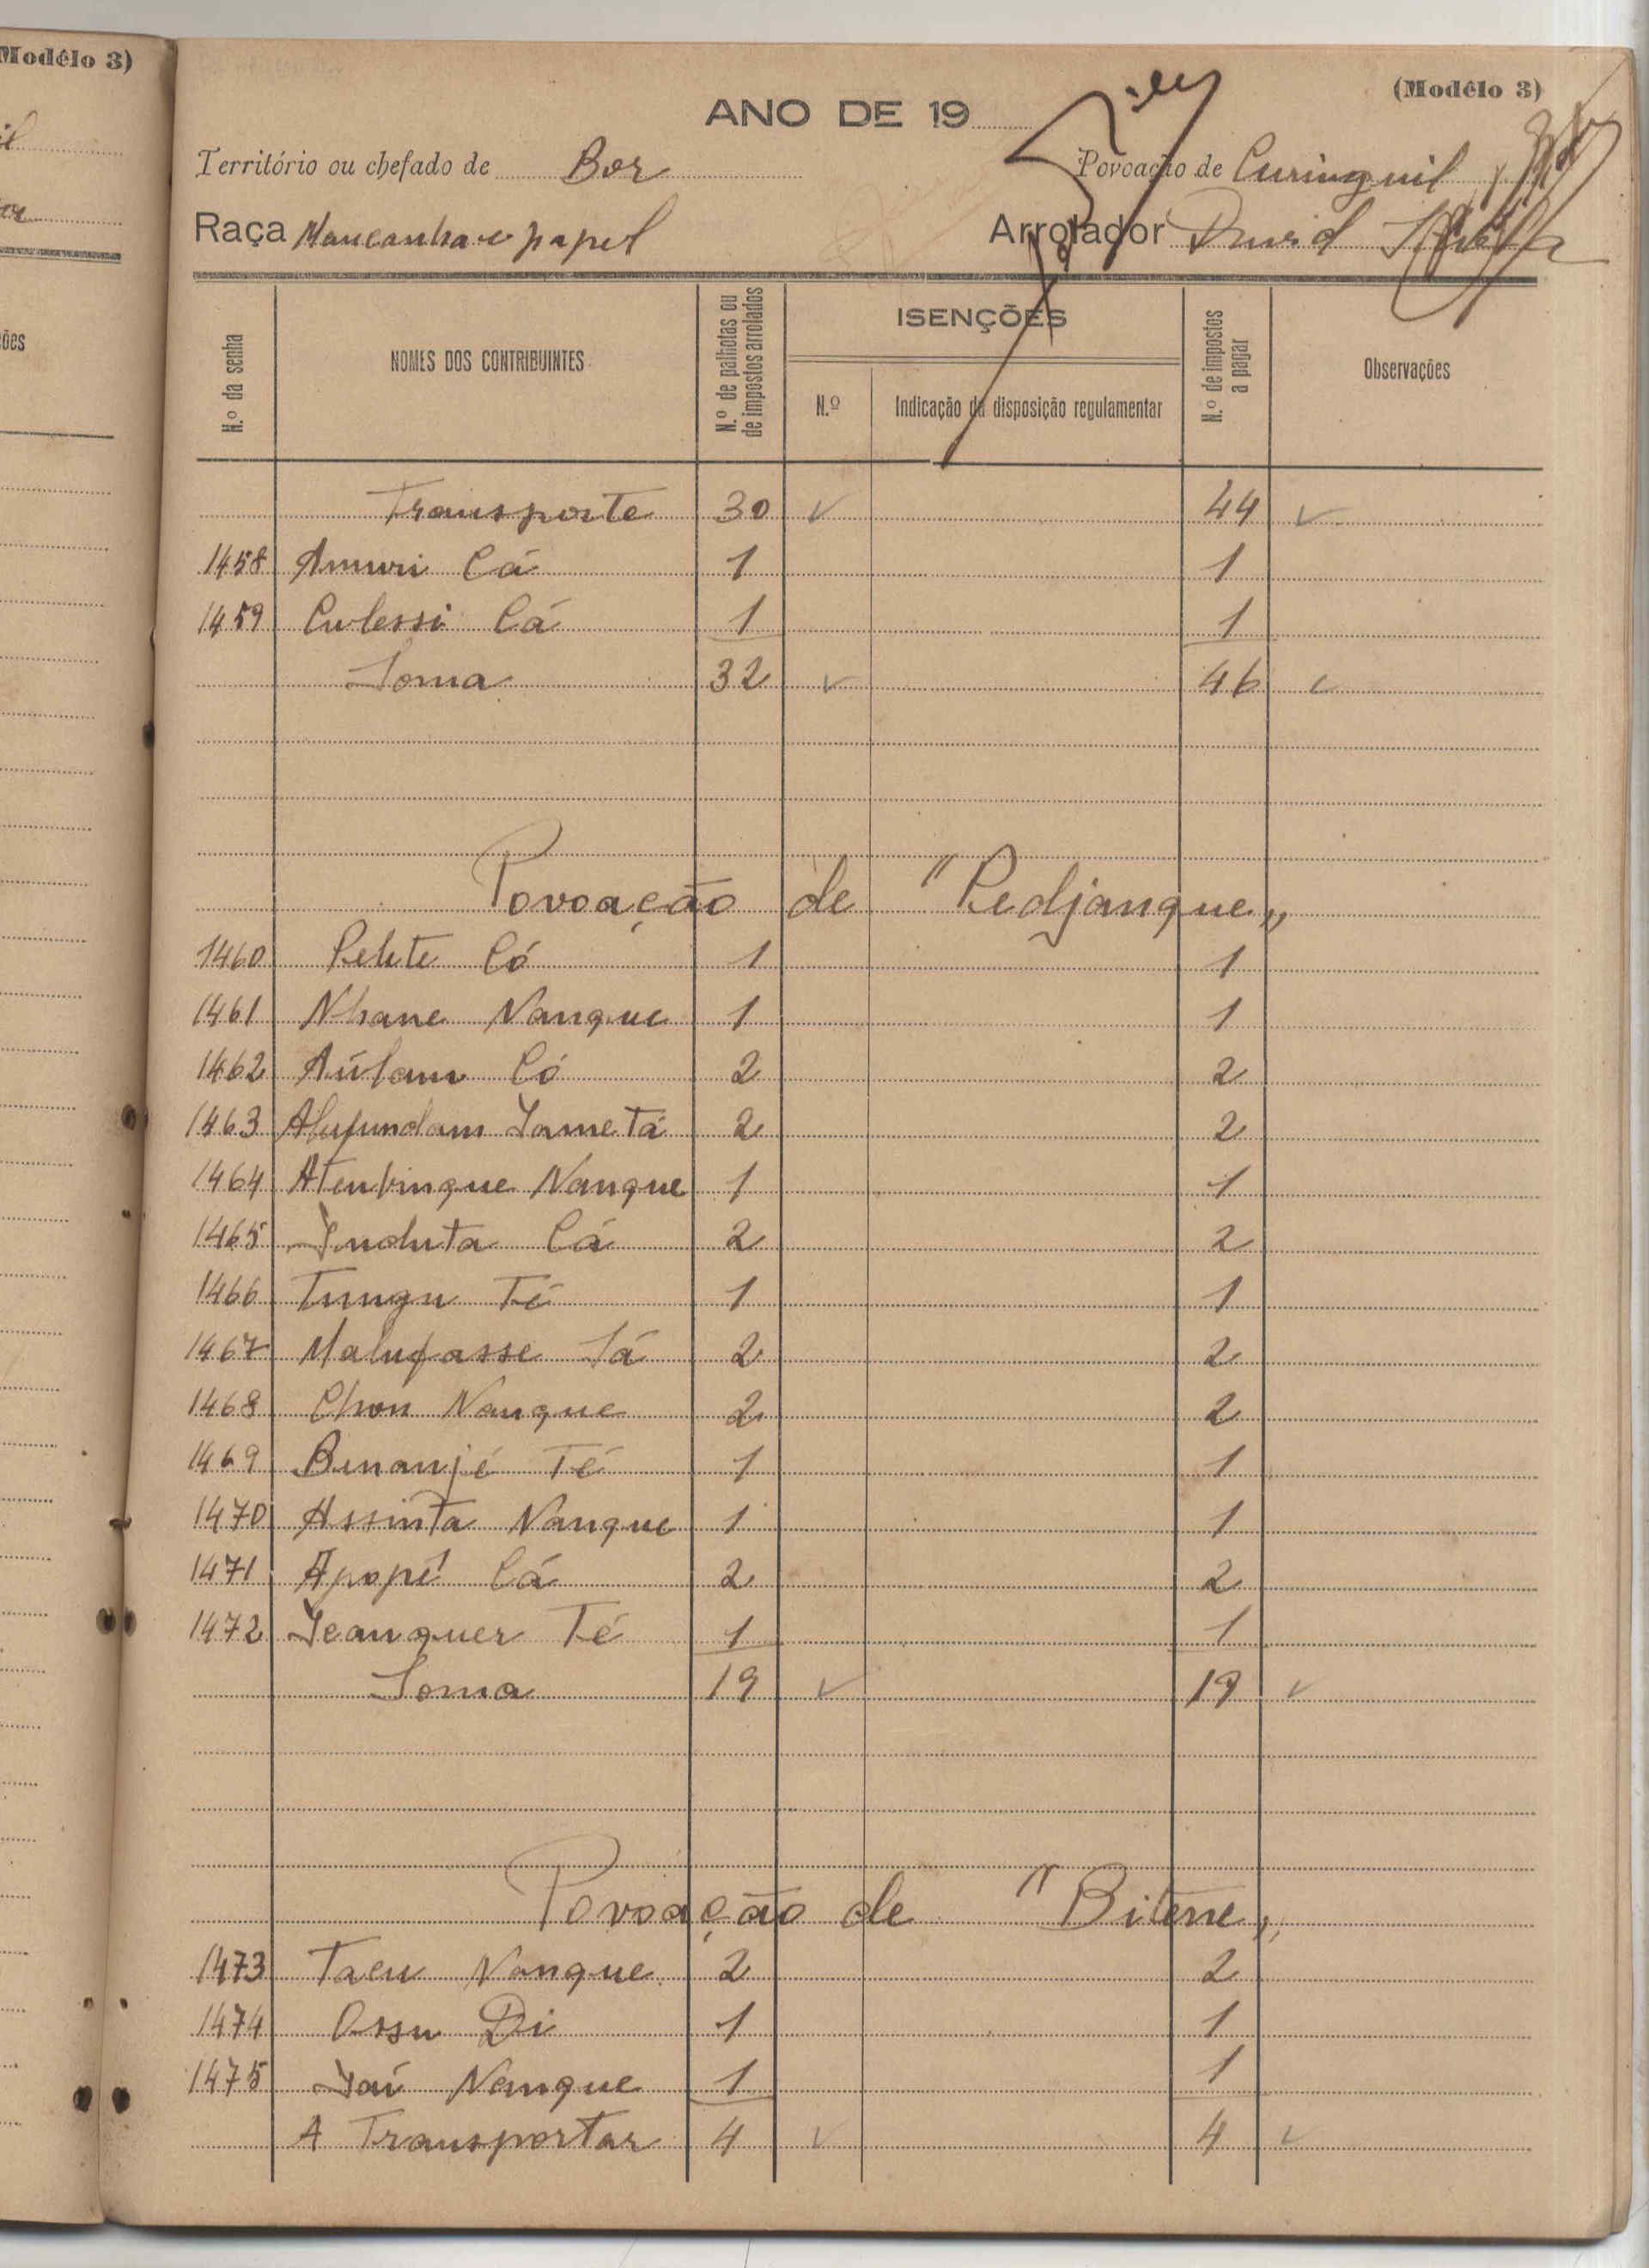 Modêlo 3)
ões
(Modêlo 3)
ANO DE 19
Território ou chefado de Bor Povoação de Curinguil
Raça Mancanha e papel Arrolador David
N.º da senha NOMES DOS CONTRIBUINTES N.º de palhotas ou de impostos arrolados ISENÇÕES N.º de impostos a pagar Observações
N.º Indicação da disposição regulamentar
Transporte 30 ✓ 44 ✓
1458 Amuri Cá 1 1
1459 Culessi Cá 1 1
Soma 32 ✓ 46 ✓
Povoação de "Pedjanque„
1460 Có 1 1
1461 Nhane Nanque 1 1
1462 Có 2 2
1463 2 2
1464 Nanque 1 1
1465 Induta Cá 2 2
1466 Tungu Té 1 1
1467 Malufasse Sá 2 2
1468 Chon Nanque 2 2
1469 Binanjé Té 1 1
1470 Assinta Nanque 1 1
1471 Apopé Cá 2 2
1472 Jeanquer Té 1 1
Soma 19 ✓ 19 ✓
Povoação de "Bitene„
1473 Taeu Nanque 2 2
1474 Ossu Di 1 1
1475 Nanque 1 1
A Transportar 4 ✓ 4 ✓